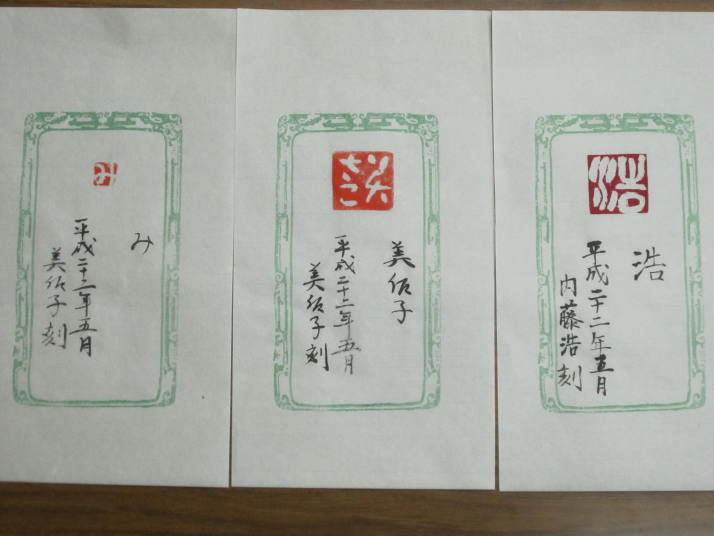 み
み
平成二十二年五月
美佐子刻
美佐子
平成二十二年五月
美佐子刻
浩
浩
平成二十二年五月
内藤浩刻